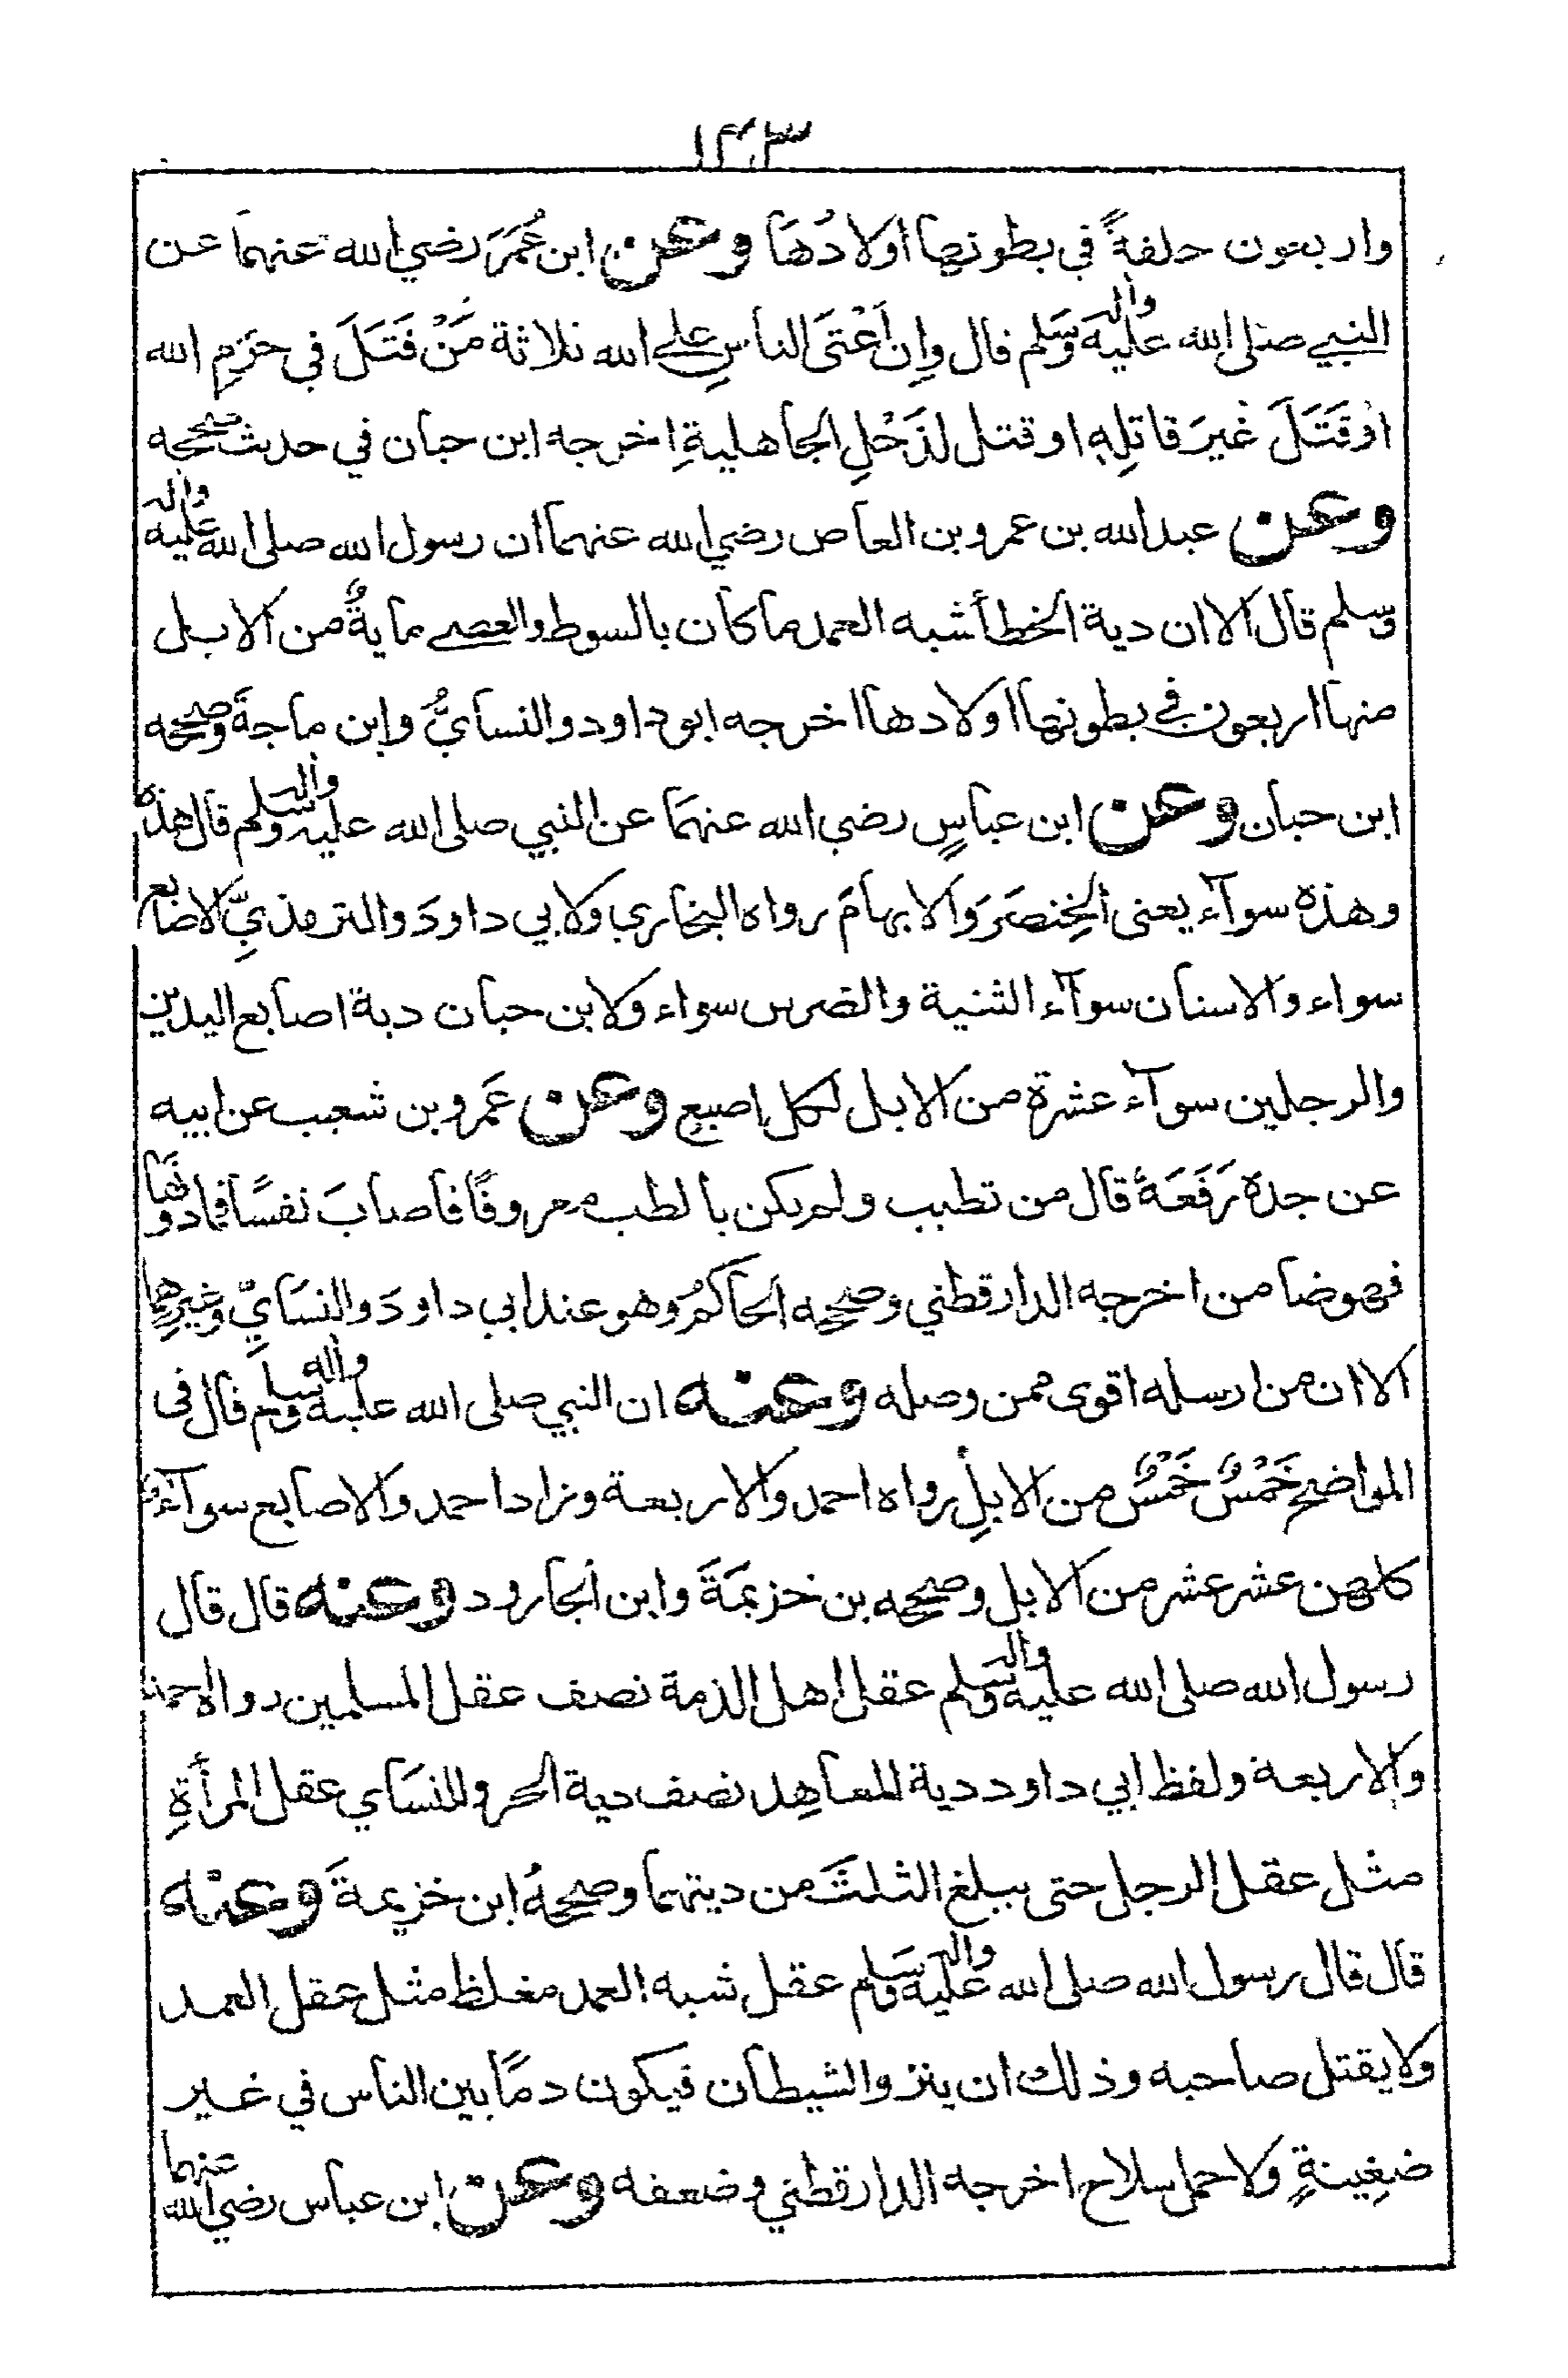 ١٤٣
واربعون حلفةً في بطونها اولادُهَا وعن ابن عُمَرَ رضي الله عنهما عن
النبي صلى الله عليه واله وَسَلم قال وِإن اَعْتَى الناسِ على الله ثلاثة مَنْ قَتَلَ في حَرَمِ الله
اَوْقَتَلَ غيرَ قاتلِهِ او قتل لذَحْلِ الجاهليةِ اخرجه ابن حبان في حديث صححه
وعن عبد الله بن عمرو بن العاص رضي الله عنهما ان رسول الله صلى الله عليه واله
وسلم قال الا ان دية الخطأ شبه العمد ما كان بالسوط والعصى مايةٌ من الابل
منها اربعون في بطونها اولادها اخرجه ابو داود والنسايُّ وابن ماجةَ وصححه
ابن حبان وعن ابن عباسٍ رضي الله عنهمَا عن النبي صلى الله عليه واله وسلم قال هذه
وهذه سوآء يعنى الخِنصَرَ والابهامَ رواه البخاري ولابي داودَ والترمذيِّ الاصابع
سواء والاسنان سوآء الثنية والضرس سواء ولابن حبان دية اصابع اليدين
والرجلين سوآء عشرة من الابل لكل اصبع وعن عَمرو بن شعيب عن ابيه
عن جده رَفَعَهُ قال من تطبب ولم يكن بالطب معروفًا فاصابَ نفسًا فما دونَها
فهو ضامن اخرجه الدارقطني وصححه الحاكمُ وهو عند ابي داودَ والنسَايِّ وغيرِهما
الا ان من ارسله اقوى ممن وصله وعنه ان النبي صلى الله عليه واله وسلم قال في
المواضح خَمْسٌ خَمْسٌ من الابلِ رواه احمد والاربعة وزاد احمد والاصابع سوآءٌ
كلهن عشر عشر من الابل وصححه بن خزيمَةَ وابن الجارود وعنه قال قال
رسول الله صلى الله عليه واله وسلم عقل اهل الذمة نصف عقل المسلمين رواه احمد
والاربعة ولفظ ابي داود دية المعاهِد نصف دية الحر وللنسَاي عقل المرأةِ
مثل عقل الرجل حتى يبلغ الثلثَ من ديتهما وصححهُ ابن خزيمةَ وعنه
قال قال رسول الله صلى الله عليه واله وسلم عقل شبه العمد مغلظ مثل عقل العمد
ولا يقتل صاحبه وذلك ان ينزو الشيطان فيكون دمًا بين الناس في غير
ضغِينةٍ ولا حمل سلاح اخرجه الدارقطني وضعفه وعن ابن عباس رضي الله عنهما